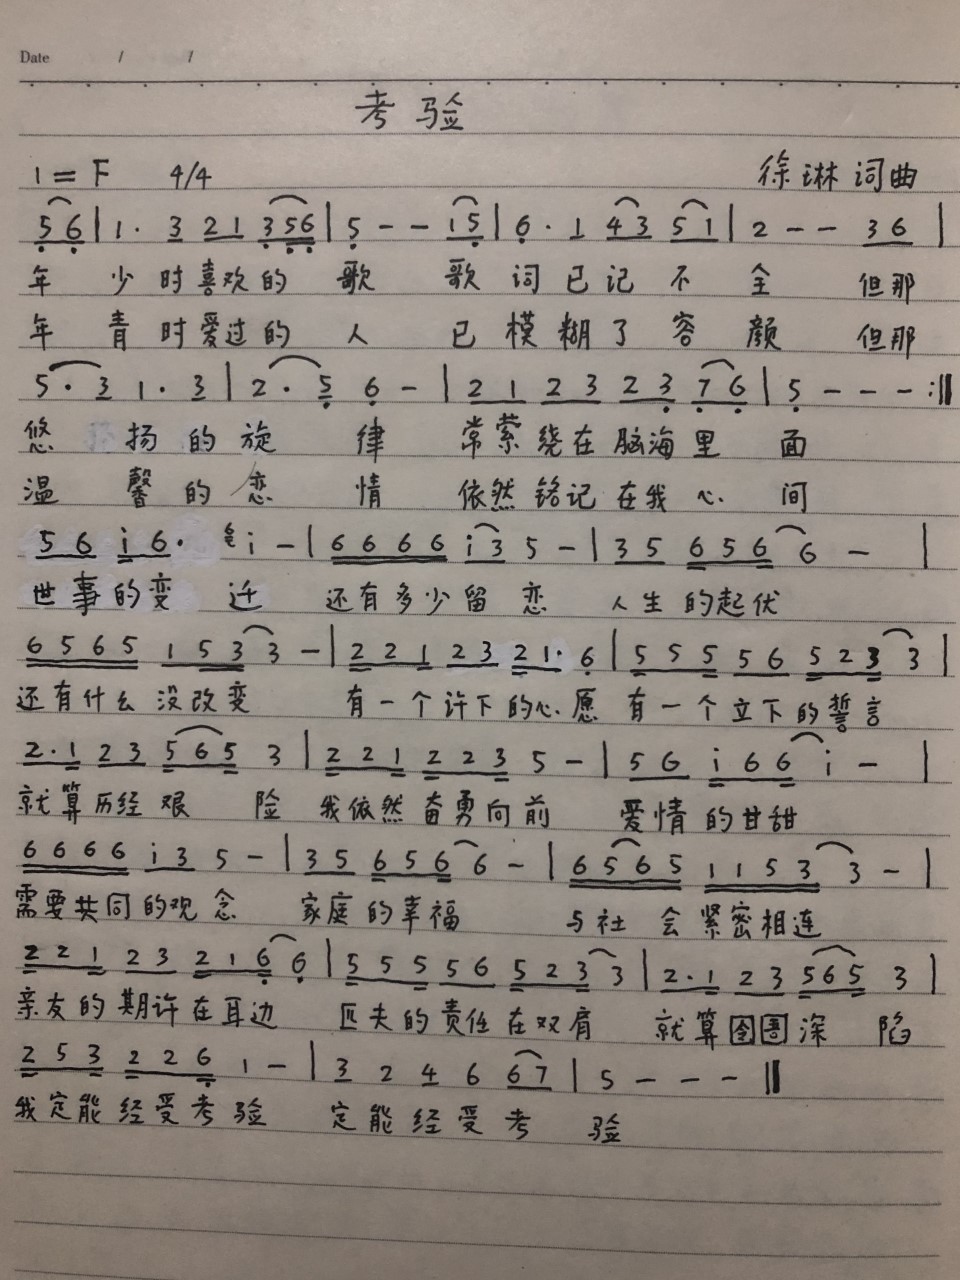 Date / /
考验
1=F 4/4 徐琳 词曲
5 6 | 1· 3 2 1 3 5 6 | 5 - - 1 5 | 6· 1 4 3 5 1 | 2 - - 3 6 |
年 少时喜欢的 歌 歌词已记不全 但那
年 青时爱过的 人 已模糊了容颜 但那
5· 3 1· 3 | 2· 5 6 - | 2 1 2 3 2 3 7 6 | 5 - - - :‖
悠 扬的旋 律 常萦绕在脑海里 面
温 馨的恋 情 依然铭记在我心 间
5 6 i 6· i - | 6 6 6 6 i 3 5 - | 3 5 6 5 6 6 - |
世事的变 迁 还有多少留恋 人生的起伏
6 5 6 5 1 5 3 3 - | 2 2 1 2 3 2 1· 6 | 5 5 5 5 6 5 2 3 3 |
还有什么没改变 有一个许下的心愿 有一个立下的誓言
2· 1 2 3 5 6 5 3 | 2 2 1 2 2 3 5 - | 5 6 i 6 6 i - |
就算历经艰 险 我依然奋勇向前 爱情的甘甜
6 6 6 6 i 3 5 - | 3 5 6 5 6 6 - | 6 5 6 5 1 1 5 3 3 - |
需要共同的观念 家庭的幸福 与社 会紧密相连
2 2 1 2 3 2 1 6 6 | 5 5 5 5 6 5 2 3 3 | 2· 1 2 3 5 6 5 3 |
亲友的期许在耳边 匹夫的责任在双肩 就算囹圄深 陷
2 5 3 2 2 6 1 - | 3 2 4 6 6 7 | 5 - - - ‖
我定能经受考验 定能经受考 验